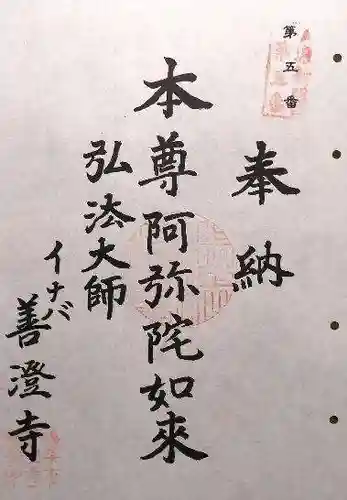 第五番
奉納
本尊阿弥陀如来
弘法大師
イナバ
善澄寺